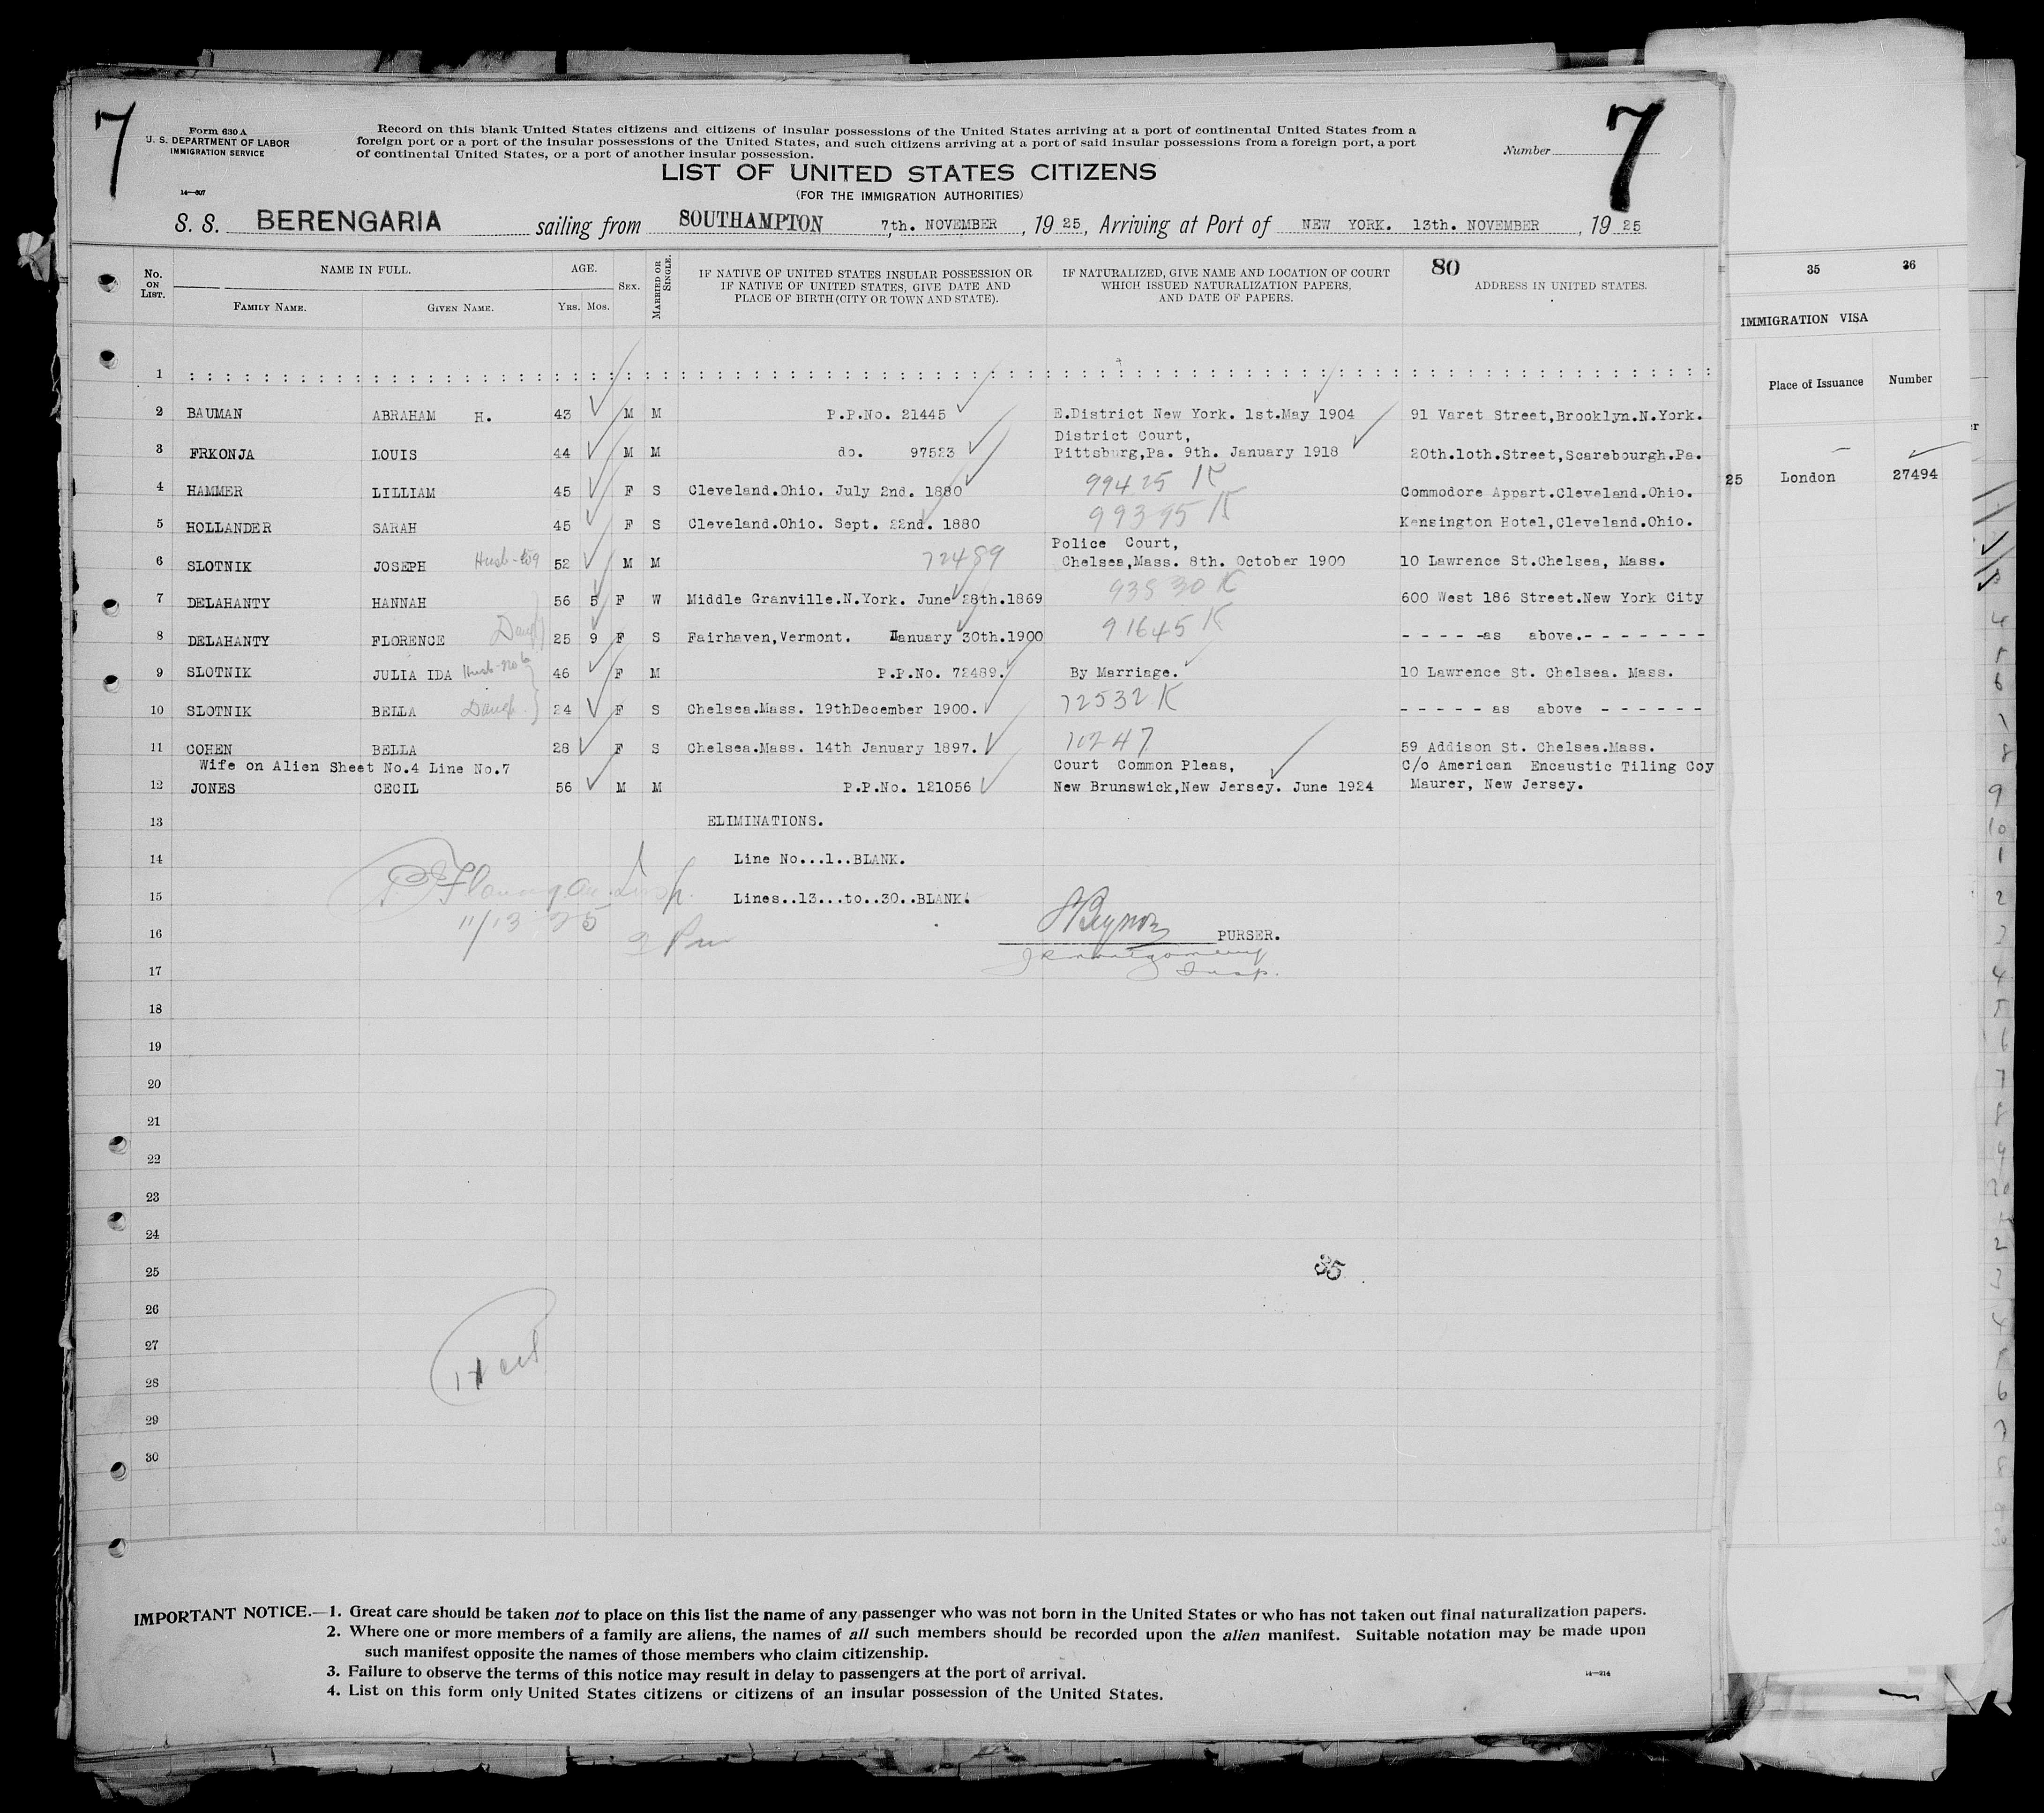 7
7
Form 630 A
U. S. DEPARTMENT OF LABOR
IMMIGRATION SERVICE
14—607
Record on this blank United States citizens and citizens of insular possessions of the United States arriving at a port of continental United States from a
foreign port or a port of the insular possessions of the United States, and such citizens arriving at a port of said insular possessions from a foreign port, a port
of continental United States, or a port of another insular possession.
Number
LIST OF UNITED STATES CITIZENS
(FOR THE IMMIGRATION AUTHORITIES)
S. S. BERENGARIA sailing from SOUTHAMPTON 7th. NOVEMBER , 19 25, Arriving at Port of NEW YORK. 13th. NOVEMBER , 19 25
No. ON LIST.
NAME IN FULL.
FAMILY NAME.
GIVEN NAME.
AGE.
YRS. MOS.
SEX.
MARRIED OR SINGLE.
IF NATIVE OF UNITED STATES INSULAR POSSESSION OR
IF NATIVE OF UNITED STATES, GIVE DATE AND
PLACE OF BIRTH (CITY OR TOWN AND STATE).
IF NATURALIZED, GIVE NAME AND LOCATION OF COURT
WHICH ISSUED NATURALIZATION PAPERS,
AND DATE OF PAPERS.
80
ADDRESS IN UNITED STATES.
1
2 BAUMAN ABRAHAM H. 43 M M P.P.No. 21445 E.District New York. 1st.May 1904 91 Varet Street,Brooklyn.N.York.
District Court,
3 FRKONJA LOUIS 44 M M do. 97523 Pittsburg,Pa. 9th. January 1918 20th.loth.Street,Scarebourgh.Pa.
4 HAMMER LILLIAM 45 F S Cleveland.Ohio. July 2nd. 1880 99425 K Commodore Appart.Cleveland.Ohio.
5 HOLLANDER SARAH 45 F S Cleveland.Ohio. Sept. 22nd. 1880 99395 K Kensington Hotel,Cleveland.Ohio.
Police Court,
6 SLOTNIK JOSEPH Husb-to9 52 M M 72489 Chelsea,Mass. 8th. October 1900 10 Lawrence St.Chelsea, Mass.
7 DELAHANTY HANNAH 56 5 F W Middle Granville.N.York. June 28th.1869 93830 K 600 West 186 Street.New York City
8 DELAHANTY FLORENCE Daug 25 9 F S Fairhaven,Vermont. January 30th.1900 91645 K - - - - -as above.- - - - - - -
9 SLOTNIK JULIA IDA Husb-No6 46 F M P.P.No. 72489. By Marriage. 10 Lawrence St. Chelsea. Mass.
10 SLOTNIK BELLA Daug. 24 F S Chelsea.Mass. 19thDecember 1900. 72532 K - - - - - as above - - - - - -
11 COHEN BELLA 28 F S Chelsea.Mass. 14th January 1897. 70247 59 Addison St. Chelsea.Mass.
Wife on Alien Sheet No.4 Line No.7 Court Common Pleas, C/o American Encaustic Tiling Coy
12 JONES CECIL 56 M M P.P.No. 121056 New Brunswick,New Jersey. June 1924 Maurer, New Jersey.
13 ELIMINATIONS.
14 Line No...1..BLANK.
15 Lines..13...to..30..BLANK.
11/13 25
16 PURSER.
17 Insp.
18
19
20
21
22
23
24
25
35
26
27
28
29
30
IMPORTANT NOTICE.—1. Great care should be taken not to place on this list the name of any passenger who was not born in the United States or who has not taken out final naturalization papers.
2. Where one or more members of a family are aliens, the names of all such members should be recorded upon the alien manifest. Suitable notation may be made upon
such manifest opposite the names of those members who claim citizenship.
3. Failure to observe the terms of this notice may result in delay to passengers at the port of arrival.
4. List on this form only United States citizens or citizens of an insular possession of the United States.
14—214
35 36
IMMIGRATION VISA
Place of Issuance Number
25 London 27494